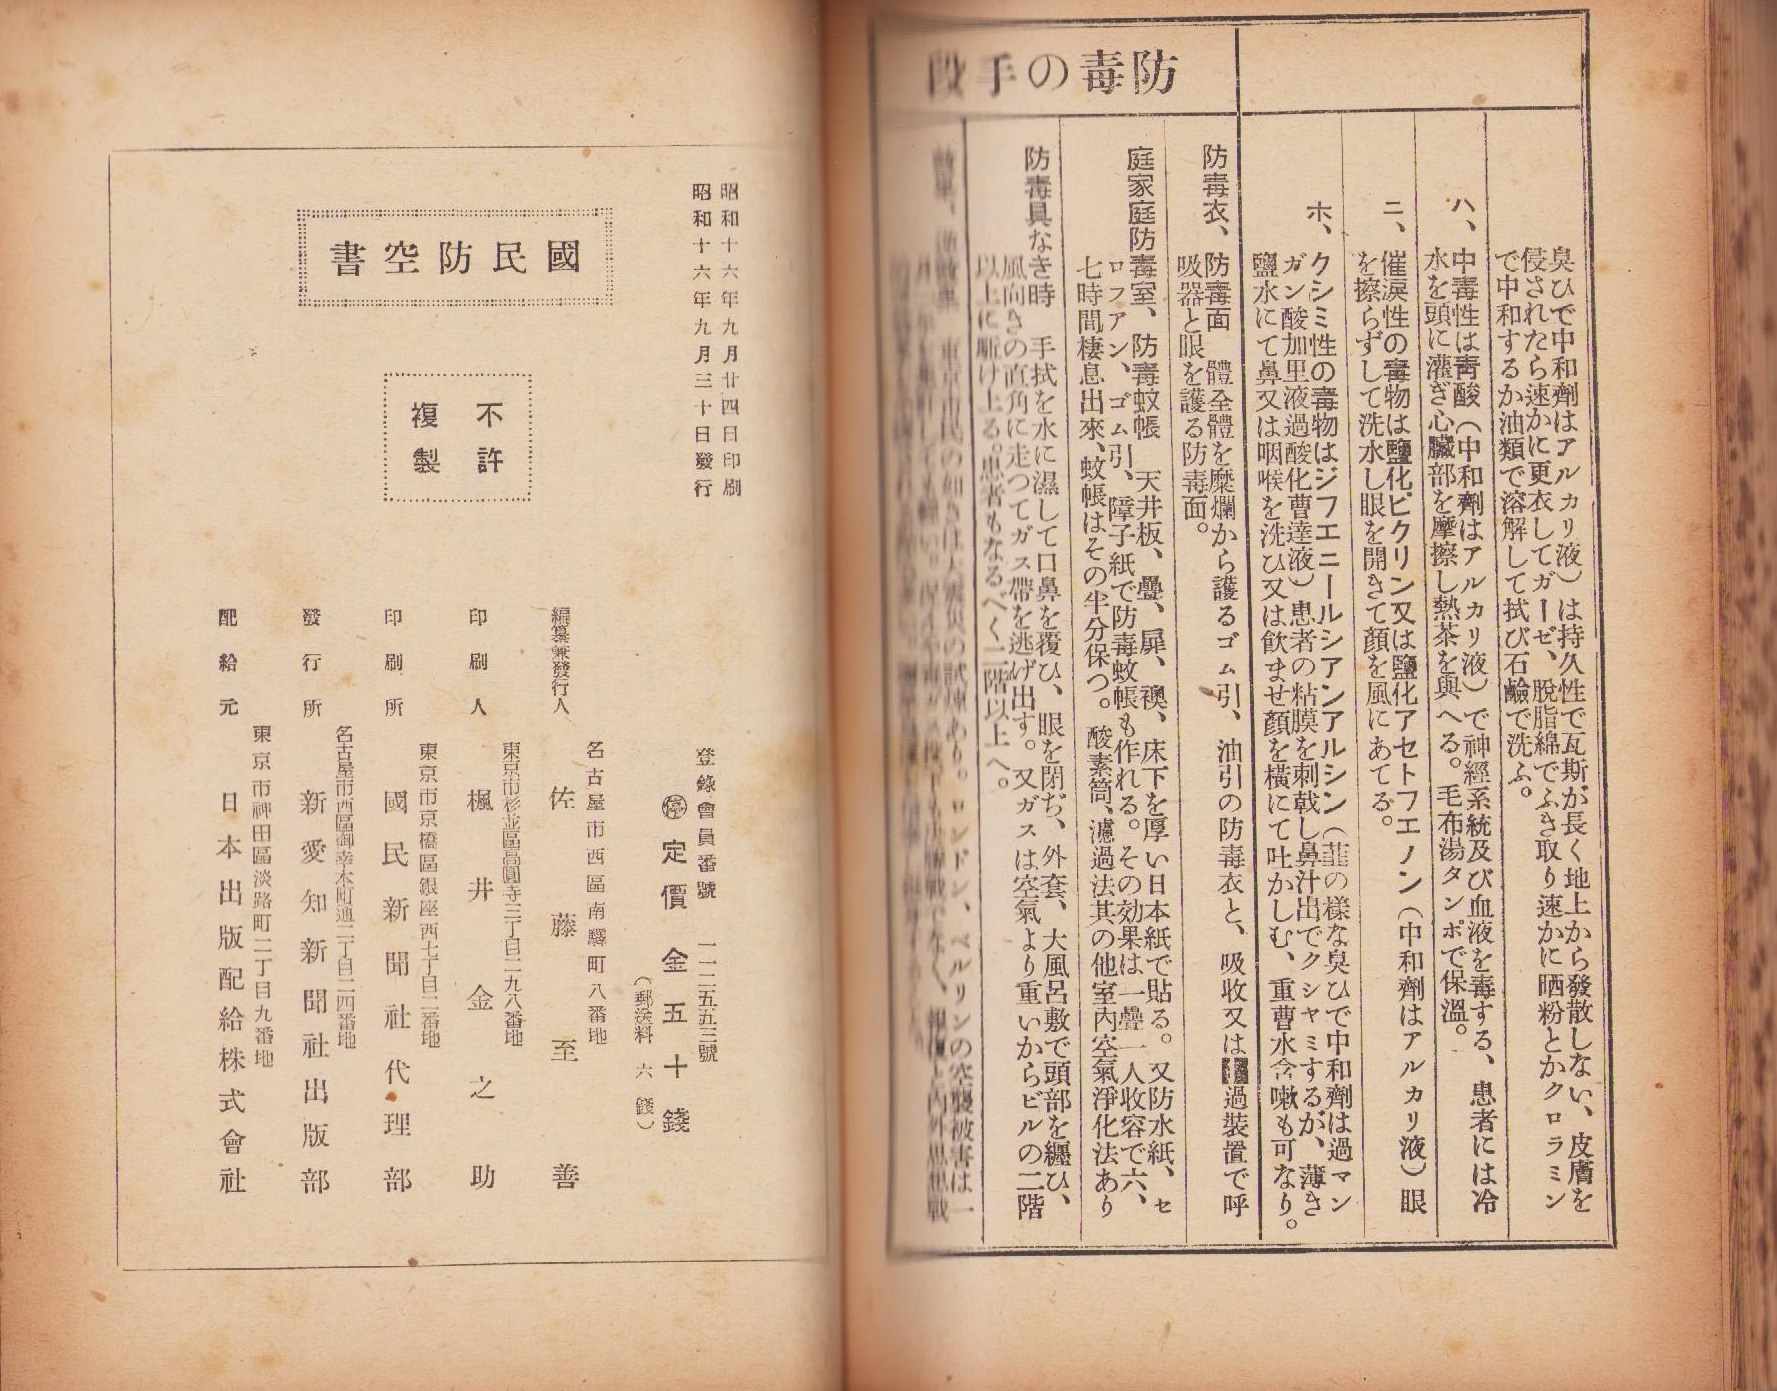 防毒の手段
臭ひで中和劑はアルカリ液）は持久性で瓦斯が長く地上から發散しない、皮膚を
侵されたら速かに更衣してガーゼ、脫脂綿でふき取り速かに晒粉とかクロラミン
で中和するか油類で溶解して拭び石鹼で洗ふ。
ハ、中毒性は靑酸（中和劑はアルカリ液）で神經系統及び血液を毒する、患者には冷
水を頭に灌ぎ心臟部を摩擦し熱茶を與へる。毛布湯タンポで保溫。
ニ、催淚性の毒物は鹽化ピクリン又は鹽化アセトフエノン（中和劑はアルカリ液）眼
を擦らずして洗水し眼を開きて顏を風にあてる。
ホ、クシミ性の毒物はジフエニールシアンアルシン（韮の樣な臭ひで中和劑は過マン
ガン酸加里液過酸化曹達液）患者の粘膜を刺戟し鼻汁出でクシヤミするが、薄き
鹽水にて鼻又は咽喉を洗ひ又は飮ませ顏を橫にて吐かしむ、重曹水含嗽も可なり。
防毒衣、防毒面　體全體を糜爛から護るゴム引、油引の防毒衣と、吸收又は過裝置で呼
吸器と眼を護る防毒面。
庭家庭防毒室、防毒蚊帳　天井板、疊、扉、襖、床下を厚い日本紙で貼る。又防水紙、セ
ロフアン、ゴム引、障子紙で防毒蚊帳も作れる。その効果は一疊一人收容で六、
七時間棲息出來、蚊帳はその半分保つ。酸素筒、濾過法其の他室內空氣淨化法あり
防毒具なき時　手拭を水に濕して口鼻を覆ひ、眼を閉ぢ、外套、大風呂敷で頭部を纒ひ、
風向きの直角に走つてガス帶を逃げ出す。又ガスは空氣より重いからビルの二階
以上に駈け上る。患者もなるべく二階以上へ。
東京市民の如きは大震災の試煉あり。ロンドン、ベルリンの空襲被害は一
昭和十六年九月廿四日印刷
昭和十六年九月三十日發行
國民防空書
不許
複製
登錄會員番號　一一二五五三號
㊡定價金五十錢
（郵送料　六錢）
名古屋市西區南驛町八番地
編纂兼發行人　佐藤至善
東京市杉並區高圓寺三丁目二九八番地
印刷人　楓井金之助
東京市京橋區銀座西七丁目二番地
印刷所　國民新聞社代理部
名古屋市西區御幸本町通二丁目二四番地
發行所　新愛知新聞社出版部
東京市神田區淡路町二丁目九番地
配給元　日本出版配給株式會社